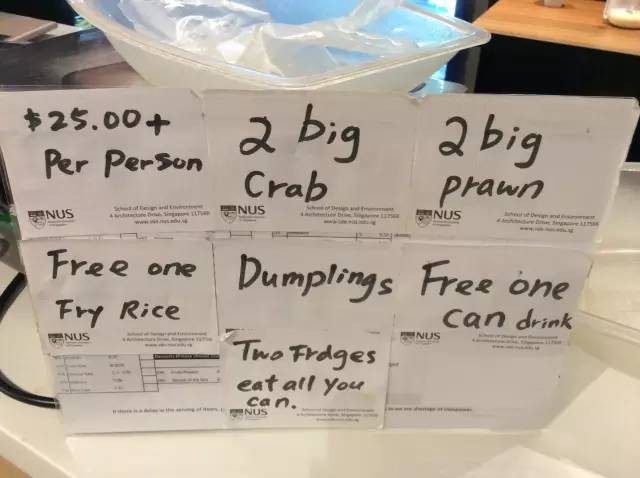 $25.00+
Per Person
NUS
School of Design and Environment
4 Architecture Drive, Singapore 117566
www.sde.nus.edu.sg
2 big
Crab
NUS
School of Design and Environment
4 Architecture Drive, Singapore 117566
www.sde.nus.edu.sg
2 big
prawn
NUS
School of Design and Environment
4 Architecture Drive, Singapore 117566
www.sde.nus.edu.sg
Free one
Fry Rice
NUS
School of Design and Environment
4 Architecture Drive, Singapore 117566
www.sde.nus.edu.sg
Dumplings
Free one
can drink
NUS
School of Design and Environment
4 Architecture Drive, Singapore 117566
www.sde.nus.edu.sg
Two Frdges
eat all you
can.
NUS
School of Design and Environment
4 Architecture Drive, Singapore 117566
www.sde.nus.edu.sg
If there is a delay in the serving of items,
we are shortage of manpower.